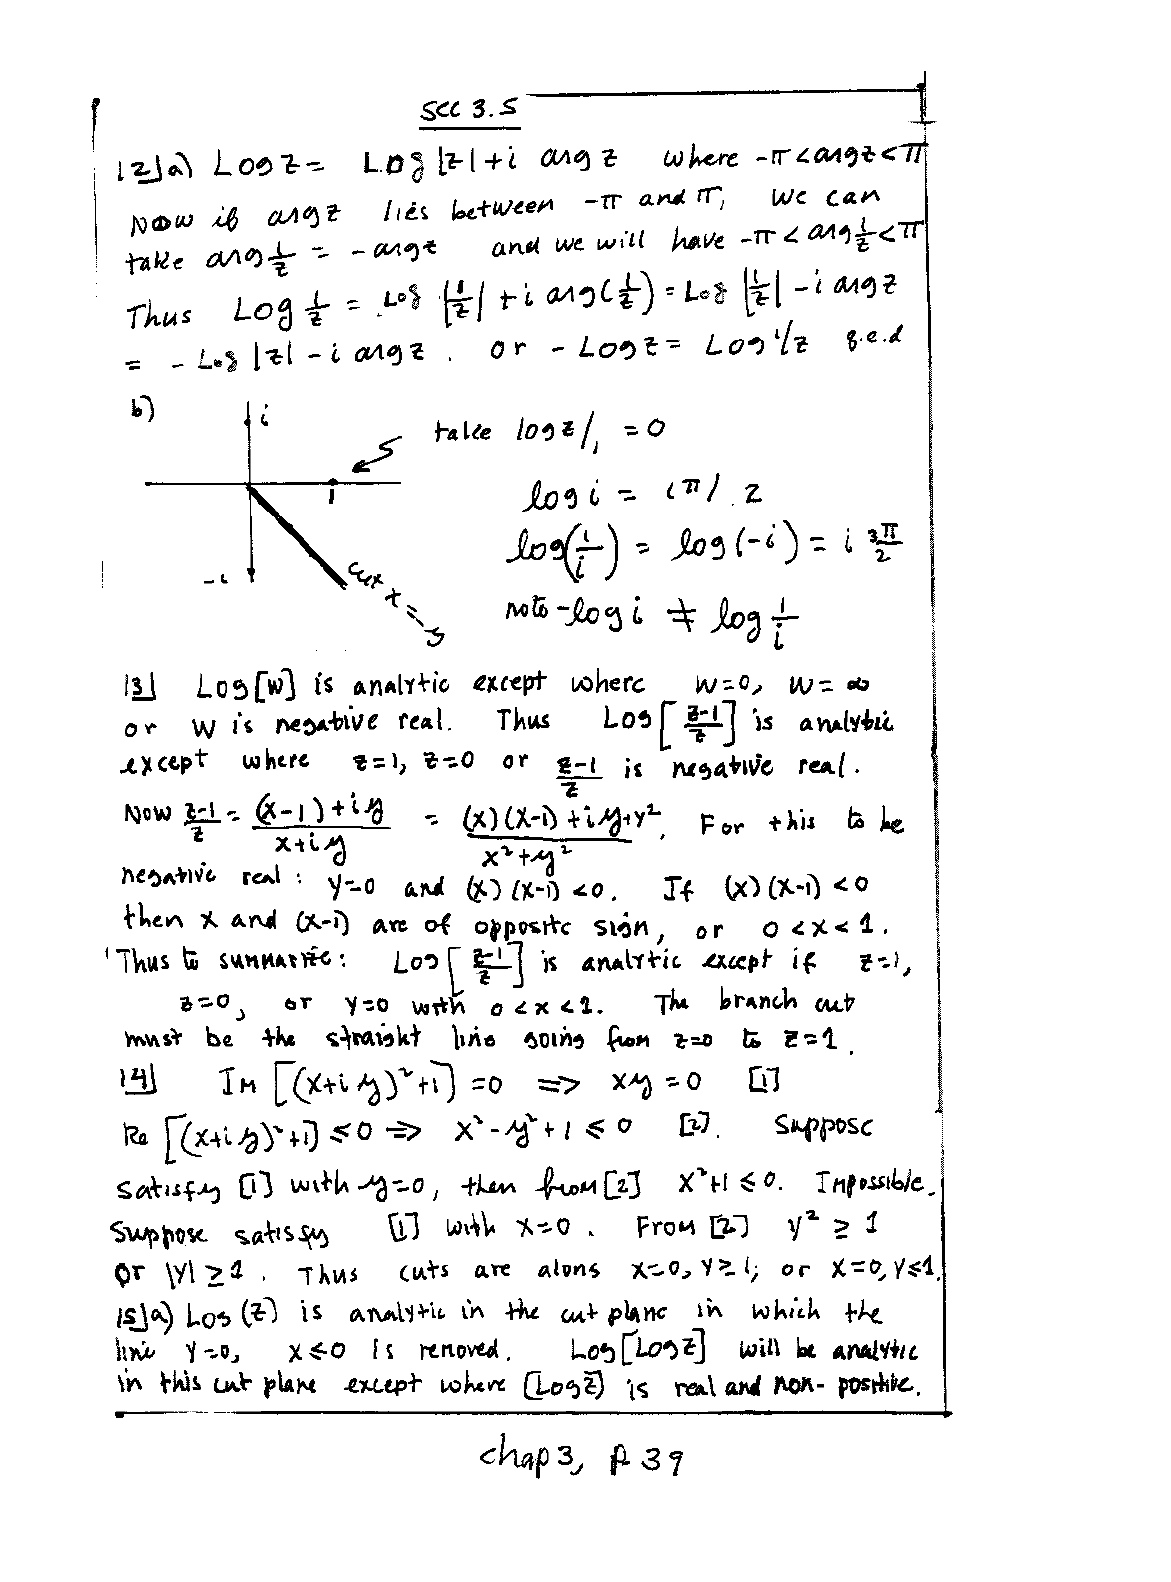 SEC 3.5
12|a) Log z = Log |z| + i arg z where -π < arg z < π
Now if arg z lies between -π and π, we can
take arg 1/z = - arg z and we will have -π < arg 1/z < π
Thus Log 1/z = Log |1/z| + i arg(1/z) = Log |1/z| - i arg z
= - Log |z| - i arg z . or - Log z = Log 1/z q.e.d
b)
i
take log z/₁ = 0
1
log i = iπ/2
log(1/i) = log(-i) = i 3π/2
-i
cut x = -y
note - log i ≠ log 1/i
13| Log[w] is analytic except where w=0, w=∞
or w is negative real. Thus Log[(z-1)/z] is analytic
except where z=1, z=0 or (z-1)/z is negative real.
Now (z-1)/z = ((x-1)+iy)/(x+iy) = ((x)(x-1)+iy+y²)/(x²+y²). For this to be
negative real: y=0 and (x)(x-1)<0. If (x)(x-1)<0
then x and (x-1) are of opposite sign, or 0<x<1.
Thus to summarize: Log[(z-1)/z] is analytic except if z=1,
z=0, or y=0 with 0<x<1. The branch cut
must be the straight line going from z=0 to z=1.
14| Im[(x+iy)²+1]=0 ⇒ xy=0 [1]
Re[(x+iy)²+1]≤0 ⇒ x²-y²+1≤0 [2]. Suppose
satisfy [1] with y=0, then from [2] x²+1≤0. Impossible.
Suppose satisfy [1] with x=0. From [2] y²≥1
or |y|≥1. Thus cuts are along x=0, y≥1; or x=0, y≤1.
15|a) Log(z) is analytic in the cut plane in which the
line y=0, x≤0 is removed. Log[Log z] will be analytic
in this cut plane except where [Log z] is real and non-positive.
chap 3, p 39